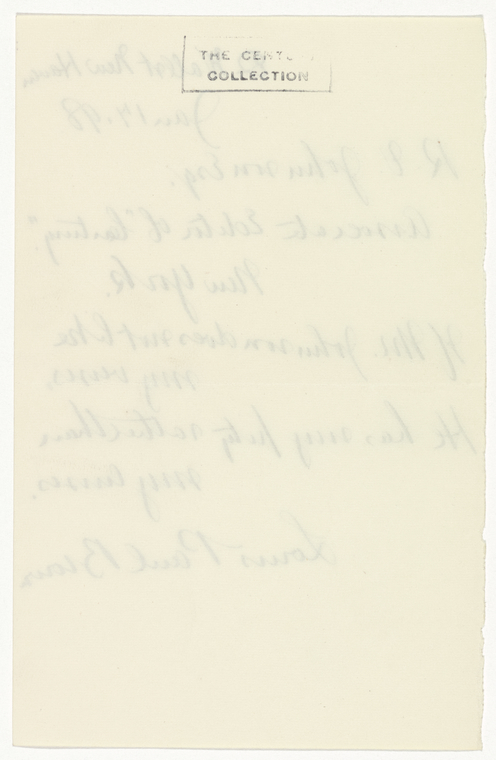 THE CENTU
COLLECTION
St New Haven
Jan 17. 98
R. U. Johnson Esq.
Associate Editor of "Century,"
New York.
If Mr. Johnson does not like
my verses,
He has my pity rather than
my curses.
Louis Paul